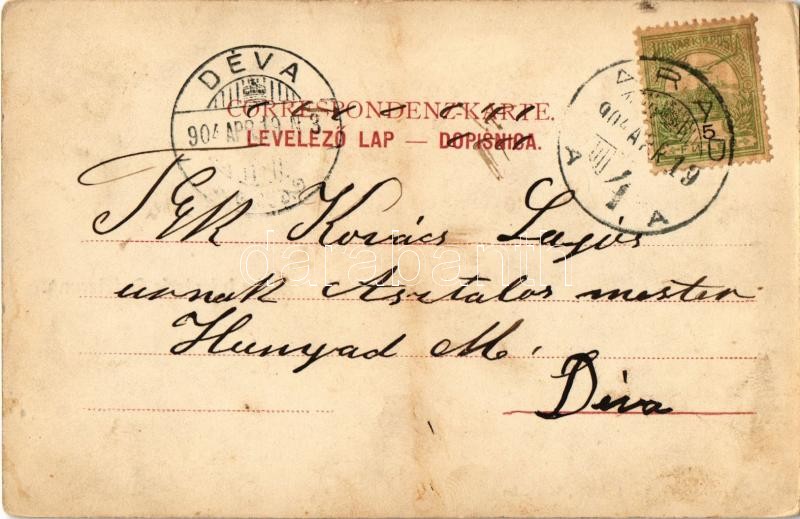 DÉVA
904 APR 19 N 3
ARAD
904 APR 19
MAGYAR KIR. POSTA
5
CORRESPONDENZ-KARTE.
LEVELEZŐ LAP — DOPISNICA.
Tek Kovács Lajos
urnak Asztalos mester
Hunyad M.
Déva
darabanth